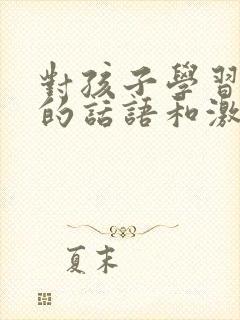 對孩子學習
的話語和激
夏末